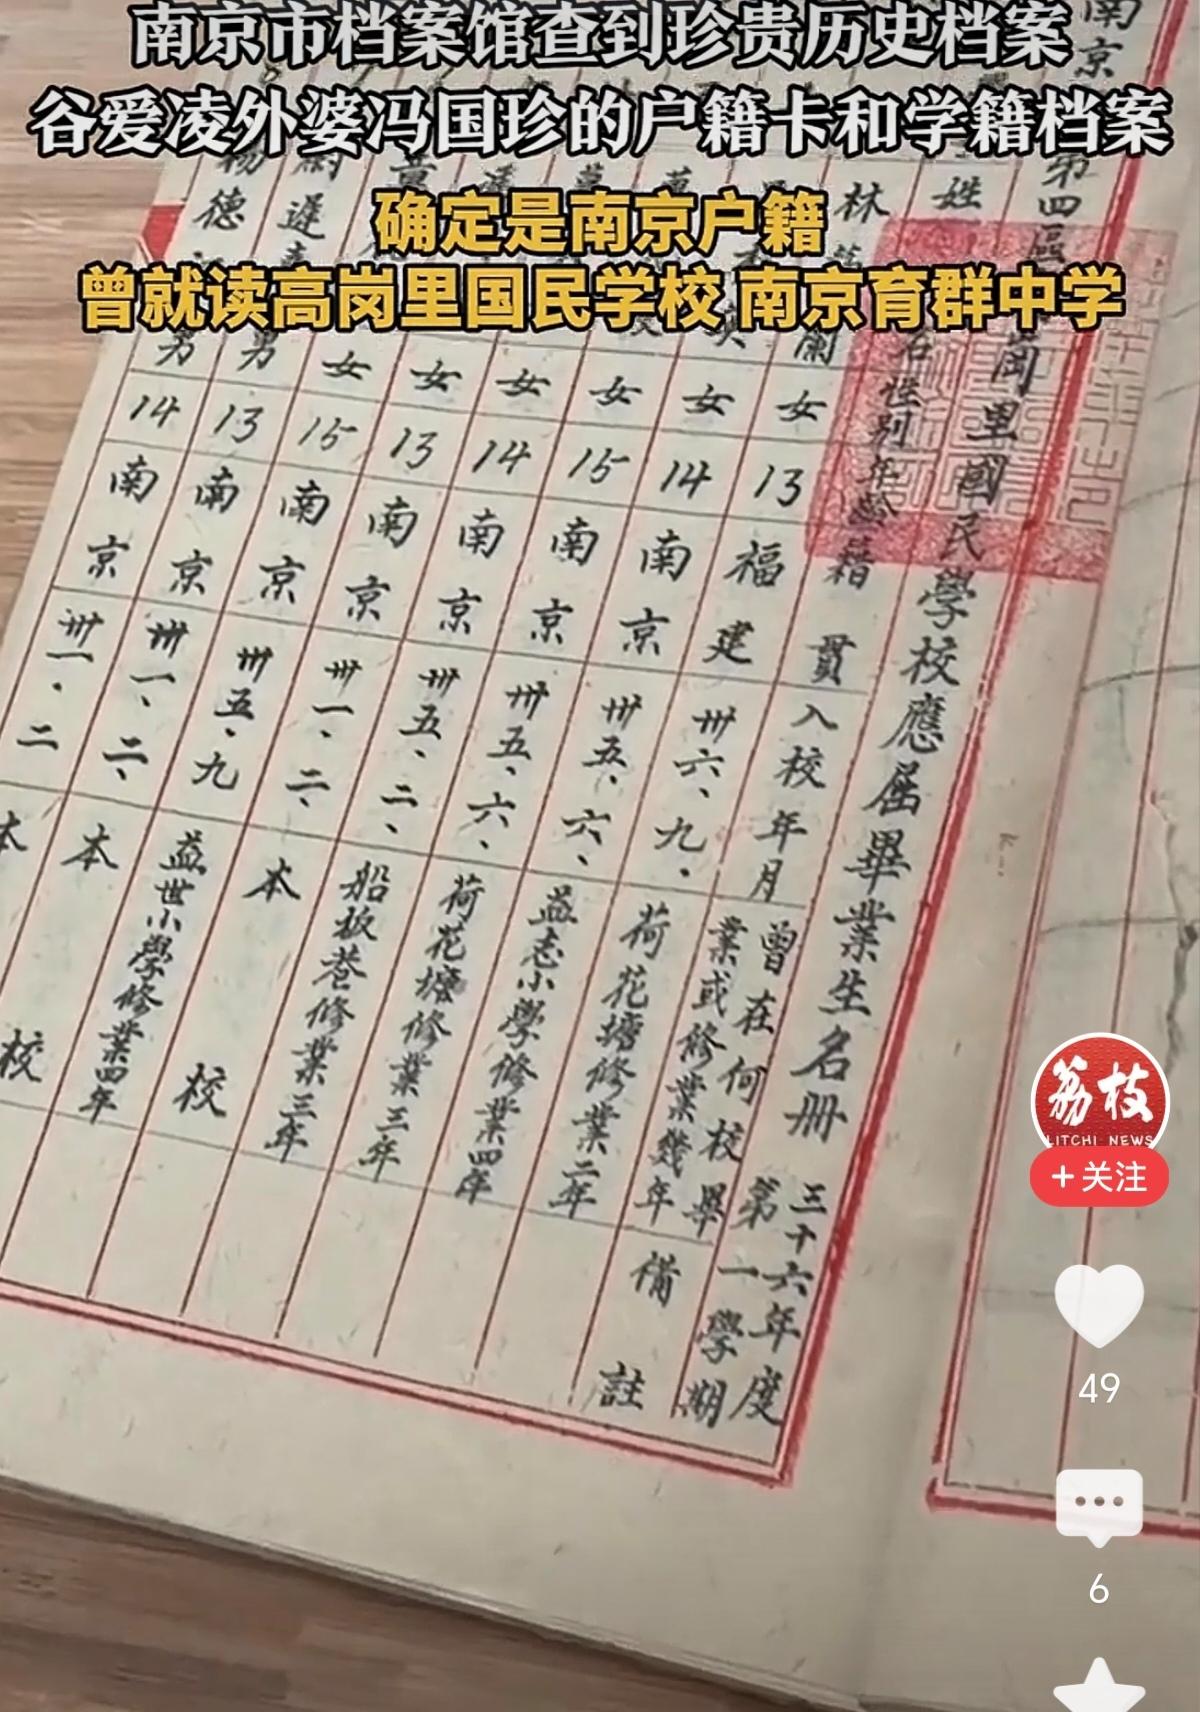 南京市档案馆查到珍贵历史档案
谷爱凌外婆冯国珍的户籍卡和学籍档案
确定是南京户籍
曾就读高岗里国民学校 南京育群中学
南京
第四區
崗里國民學校應屆畢業生名册
三十六年度
第一學期
姓名
性别
年龄
籍貫
入校年月
曾在何校畢
業或修業幾年
備註
林
蘭
女
13
福建
卅六、九、
荷花塘修業二年
女
14
南京
卅五、六、
益志小學修業四年
女
15
南京
卅五、六、
荷花塘修業三年
女
14
南京
卅五、二、
船板巷修業三年
女
13
南京
卅一、二、
本校
女
15
南京
卅五、九
益世小學修業四年
遲
男
13
南京
卅一、二、
本校
楊德
男
14
南京
卅一、二
本校
荔枝
LITCHI NEWS
+关注
49
6